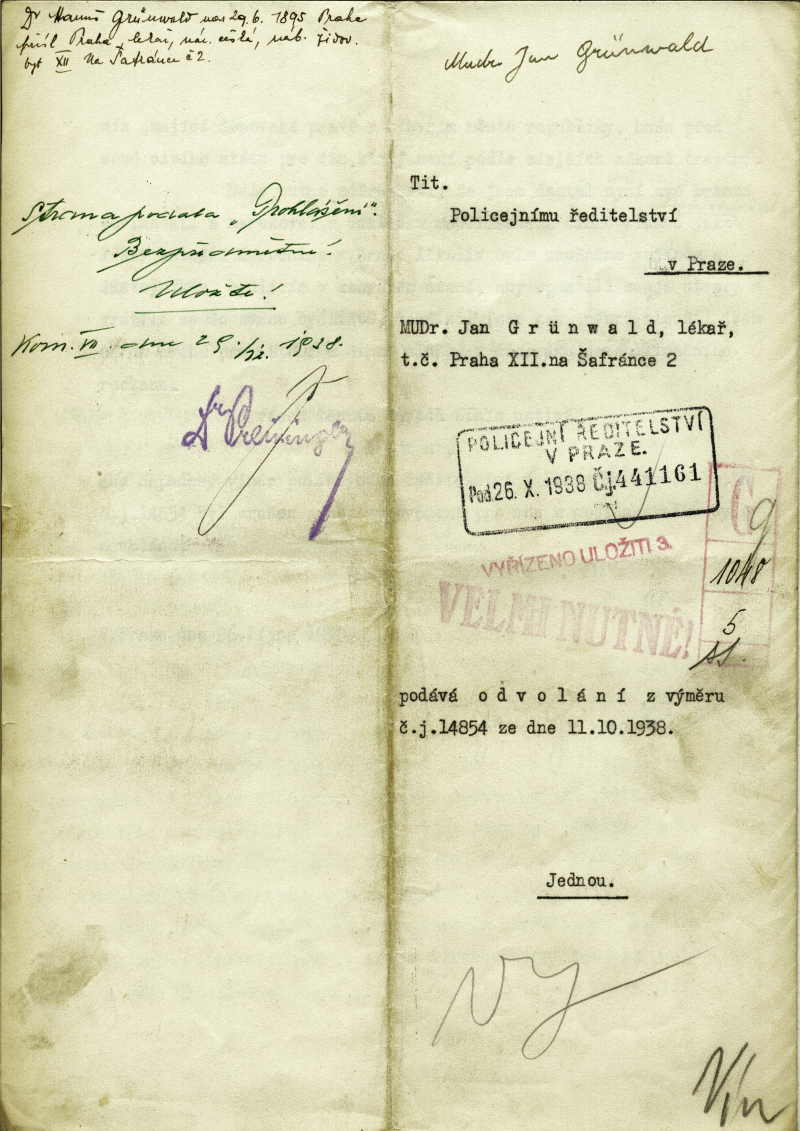 Dr Hanuš Grünwald nar 29.6. 1895 Praha
přísl Praha, lékař, nár. česká, náb. židov.
byt XII Na Šafránce č 2.
Strana podala „Prohlášení“.
Bezpředmětné!
Uložte!
Kom. VII. dne 29/XI. 1938.
Dr
Mudr. Jan Grünwald
Tit.
Policejnímu ředitelství
v Praze.
MUDr. Jan G r ü n w a l d, lékař,
t.č. Praha XII.na Šafránce 2
POLICEJNÍ ŘEDITELSTVÍ
V PRAZE.
Pod 26. X. 1938 Čj. 441161
G
9
1048
5
VYŘÍZENO ULOŽITI 3.
VELMI NUTNÉ!
podává o d v o l á n í z výměru
č.j.14854 ze dne 11.10.1938.
Jednou.